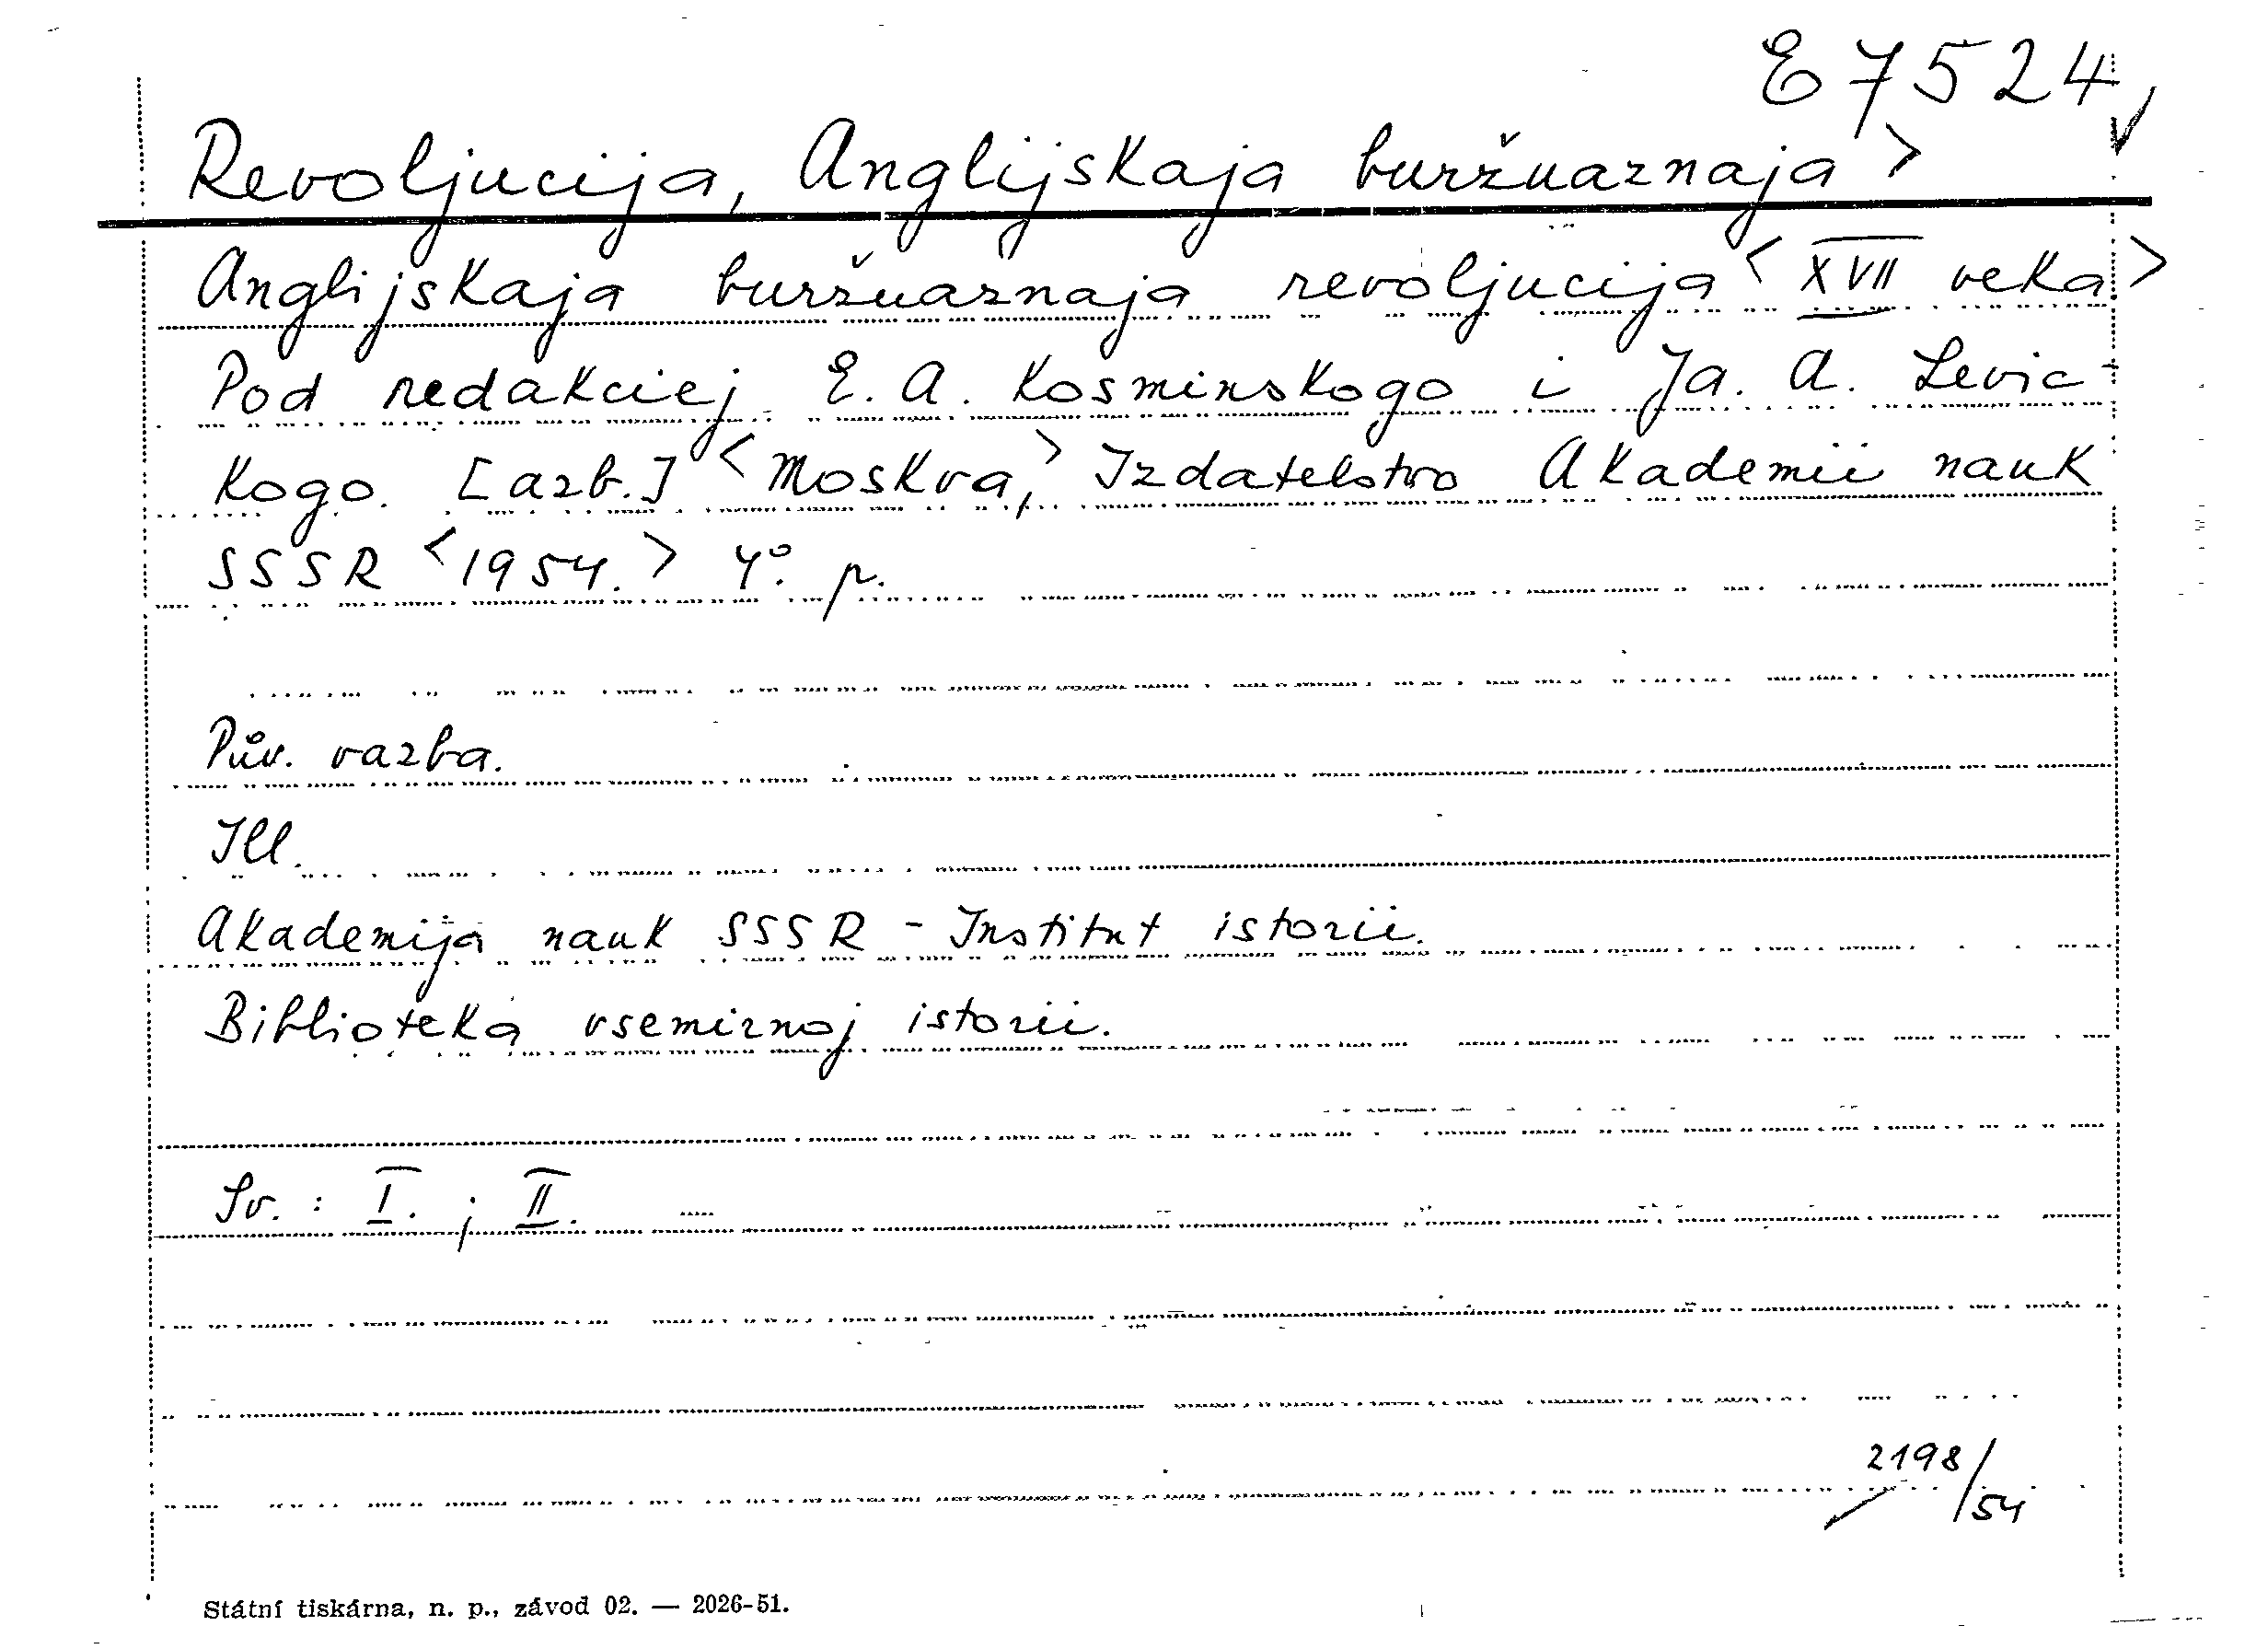 E 7524
Revoljucija, Anglijskaja buržuaznaja >
Anglijskaja buržuaznaja revoljucija < XVII veka >
Pod redakciej E. A. Kosminskogo i Ja. A. Levic-
kogo. [azb.] < Moskva, > Izdatelstvo Akademii nauk
SSSR < 1954. > 4°. p.
Pův. vazba.
Ill.
Akademija nauk SSSR - Institut istorii.
Biblioteka vsemirnoj istorii.
Sv. : I. ; II.
2198/54
Státní tiskárna, n. p., závod 02. — 2026-51.